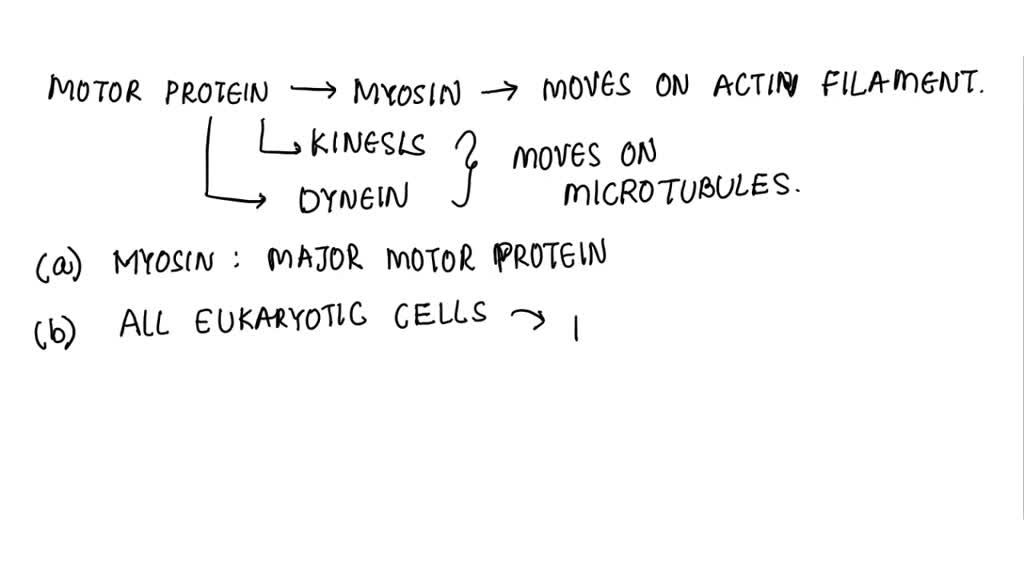 MOTOR PROTEIN → MYOSIN → MOVES ON ACTIN FILAMENT.
↳ KINESIS } MOVES ON
→ DYNEIN MICROTUBULES.
(a) MYOSIN : MAJOR MOTOR PROTEIN
(b) ALL EUKARYOTIC CELLS → I